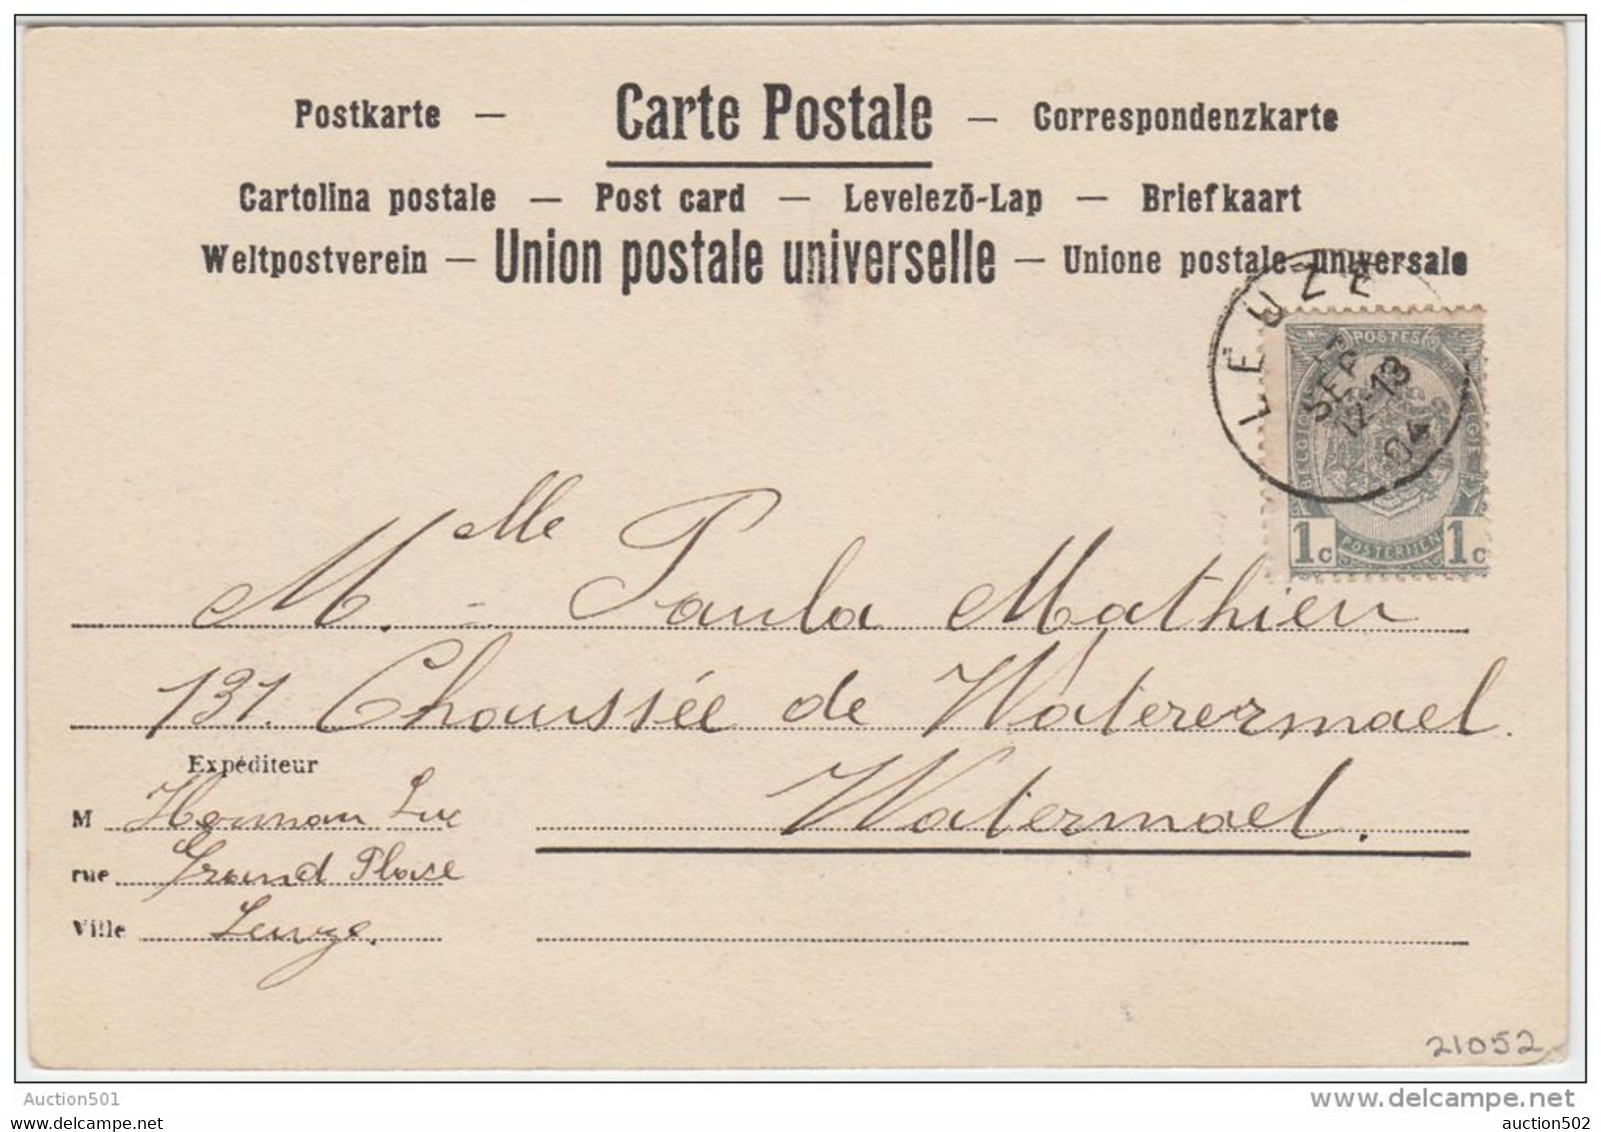 Postkarte — Carte Postale — Correspondenzkarte
Cartolina postale — Post card — Levelezō-Lap — Briefkaart
Weltpostverein — Union postale universelle — Unione postale universale
LEUZE
SEPT
12-13
04
POSTES
BELGIQUE
1c POSTERIJEN 1c
Melle Paula Mathieu
131. Chaussée de Watermael.
Watermael.
Expéditeur
M Herman Luc
rue Grand Place
Ville Leuze.
21052
Auction501
www.delcampe.net
auction502